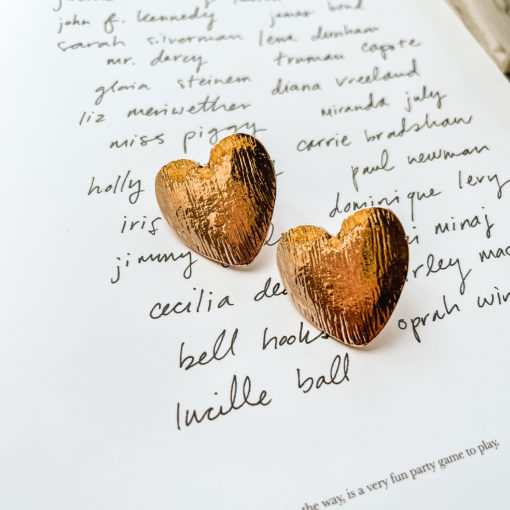 john f. kennedy james bond
sarah silverman lena dunham
mr. darcy truman capote
gloria steinem diana vreeland
liz meriwether miranda july
miss piggy carrie bradshaw
holly paul newman
iris dominique levy
jimmy minaj
cecilia
bell hooks oprah
lucille ball
the way, is a very fun party game to play.